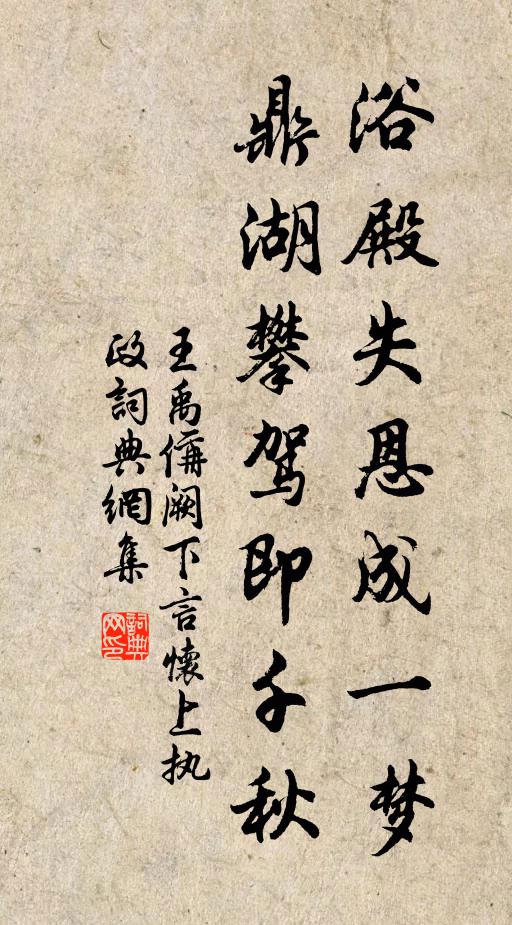 浴殿失恩成一梦
鼎湖攀驾即千秋
王禹偁阙下言懷上执
政詞典網集
詞典网印